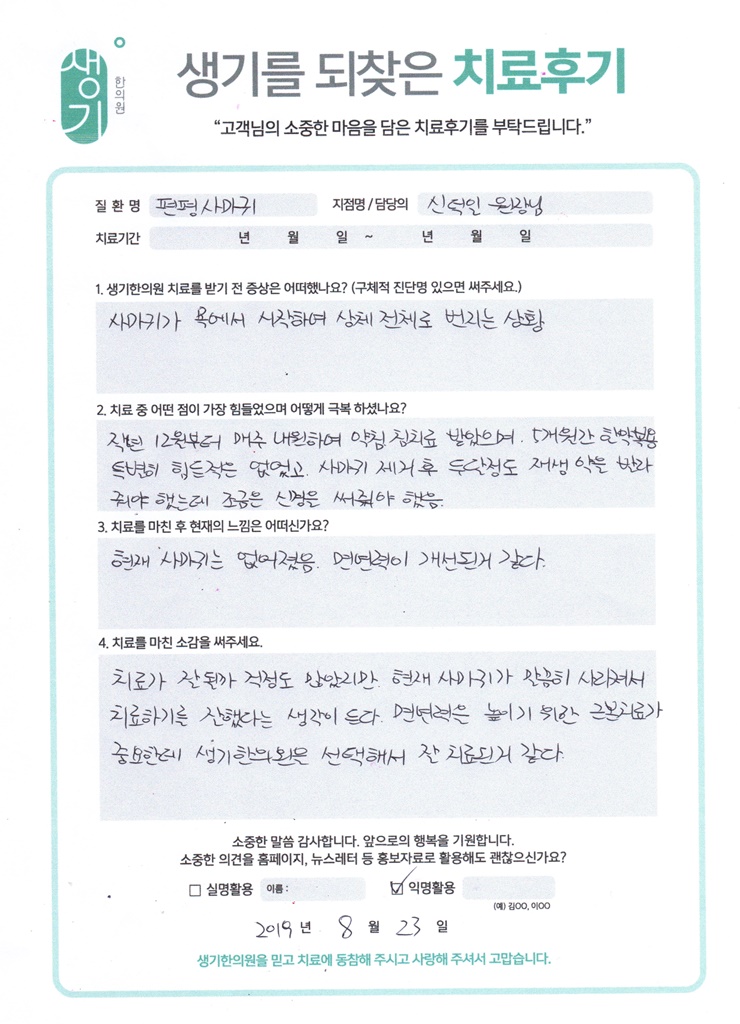 생기 한의원
생기를 되찾은 치료후기
“고객님의 소중한 마음을 담은 치료후기를 부탁드립니다.”
질 환 명 편평사마귀 지점명 / 담당의 신덕일 원장님
치료기간 년 월 일 ~ 년 월 일
1. 생기한의원 치료를 받기 전 증상은 어떠했나요? (구체적 진단명 있으면 써주세요.)
사마귀가 목에서 시작하여 상체 전체로 번지는 상황
2. 치료 중 어떤 점이 가장 힘들었으며 어떻게 극복 하셨나요?
작년 12월부터 매주 내원하여 약침 침치료 받았으며. 5개월간 한약복용
특별히 힘든적은 없었고. 사마귀 제거 후 두달정도 재생 약을 발라
줘야 했는데 조금은 신경을 써줘야 했음.
3. 치료를 마친 후 현재의 느낌은 어떠신가요?
현재 사마귀는 없어졌음. 면연력이 개선된거 같다.
4. 치료를 마친 소감을 써주세요.
치료가 잘될까 걱정도 많았지만. 현재 사마귀가 말끔히 사라져서
치료하기를 잘했다는 생각이 든다. 면연력을 높이기 위한 근본치료가
중요한데 생기한의원을 선택해서 잘 치료된거 같다.
소중한 말씀 감사합니다. 앞으로의 행복을 기원합니다.
소중한 의견을 홈페이지, 뉴스레터 등 홍보자료로 활용해도 괜찮으신가요?
□ 실명활용 이름 : ☑ 익명활용
(예) 김OO, 이OO
2019 년 8 월 23 일
생기한의원을 믿고 치료에 동참해 주시고 사랑해 주셔서 고맙습니다.